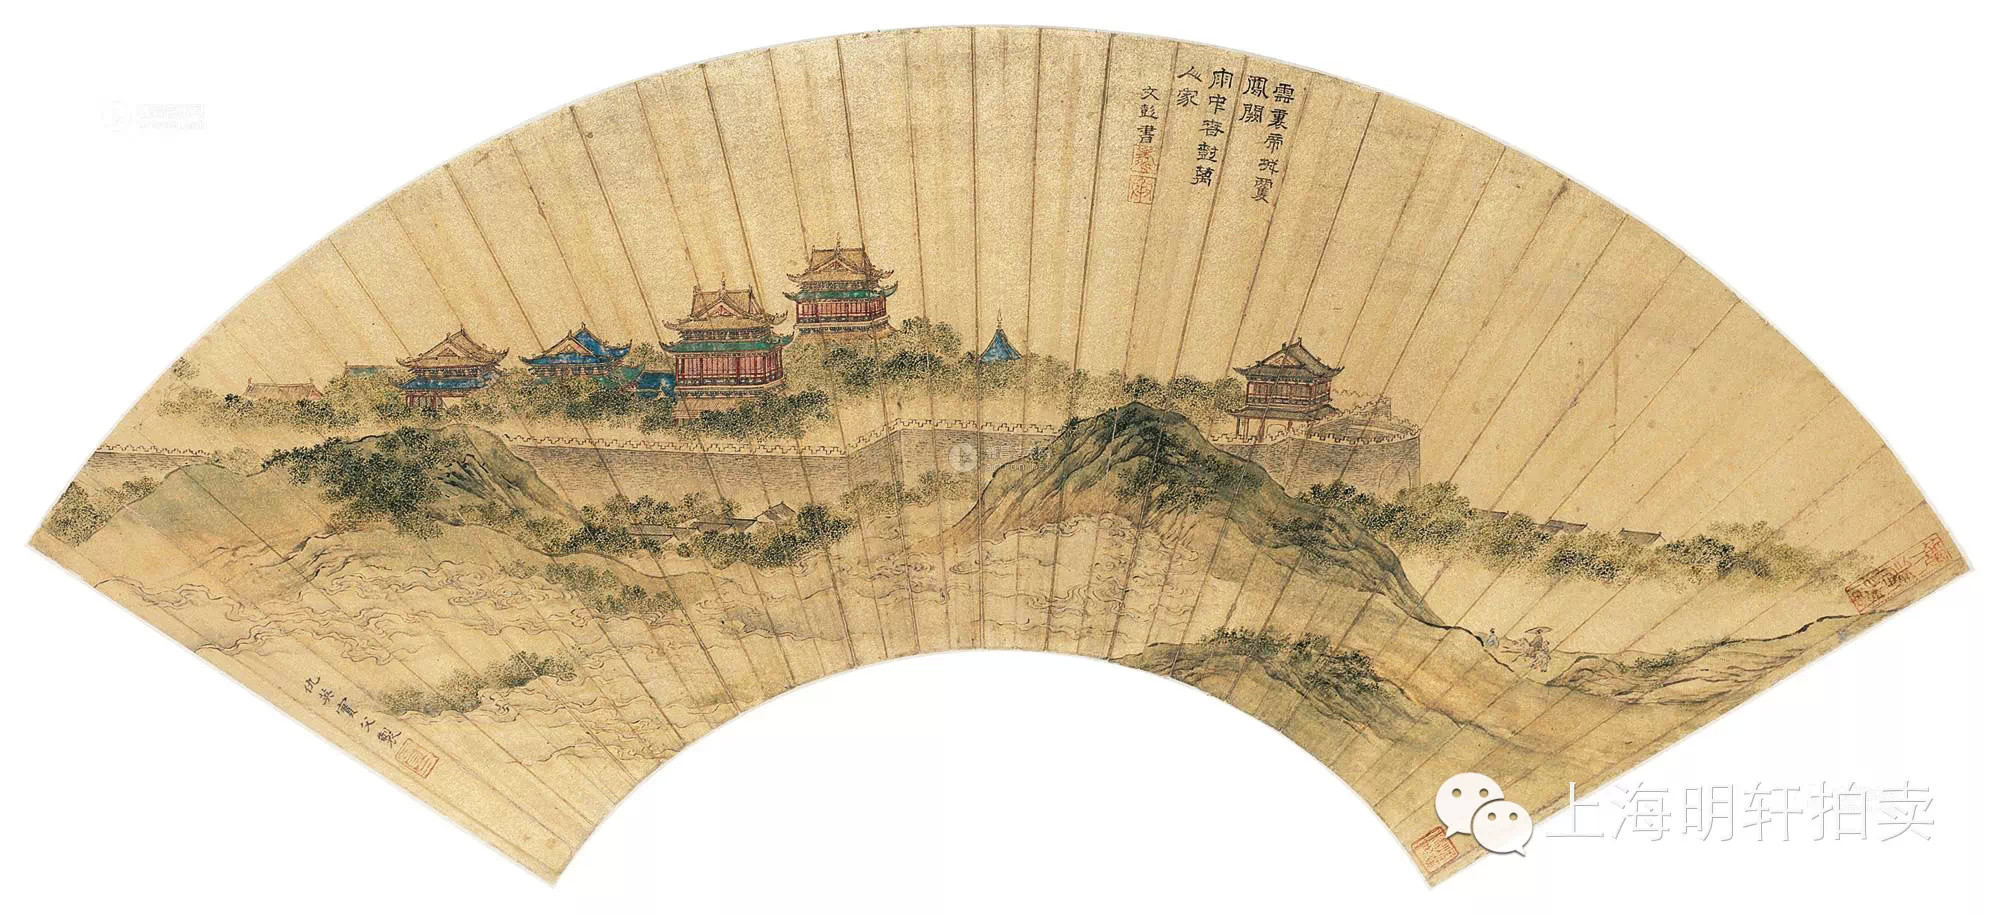 雲裏帝城雙
鳳闕
雨中春樹萬
人家
文彭書
仇英實父製
上海明轩拍卖